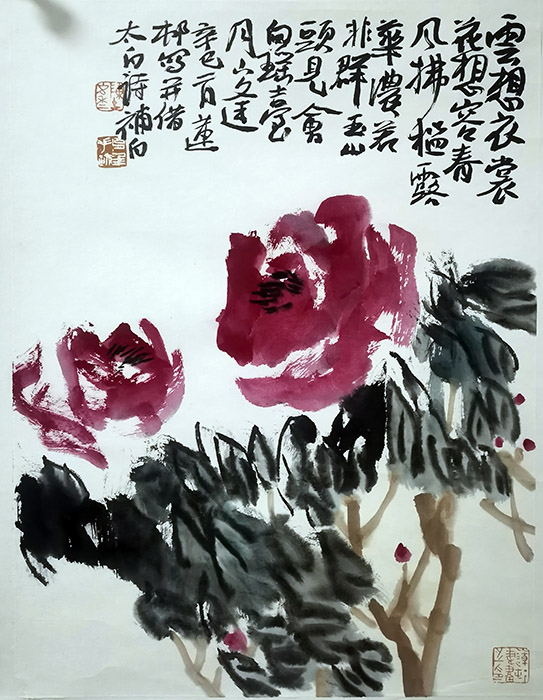 雲想衣裳
花想容春
風拂檻露
華濃若
非群玉山
頭見會
向瑤臺
月下逢
辛巳 蓮
邨寫并借
太白詩補白